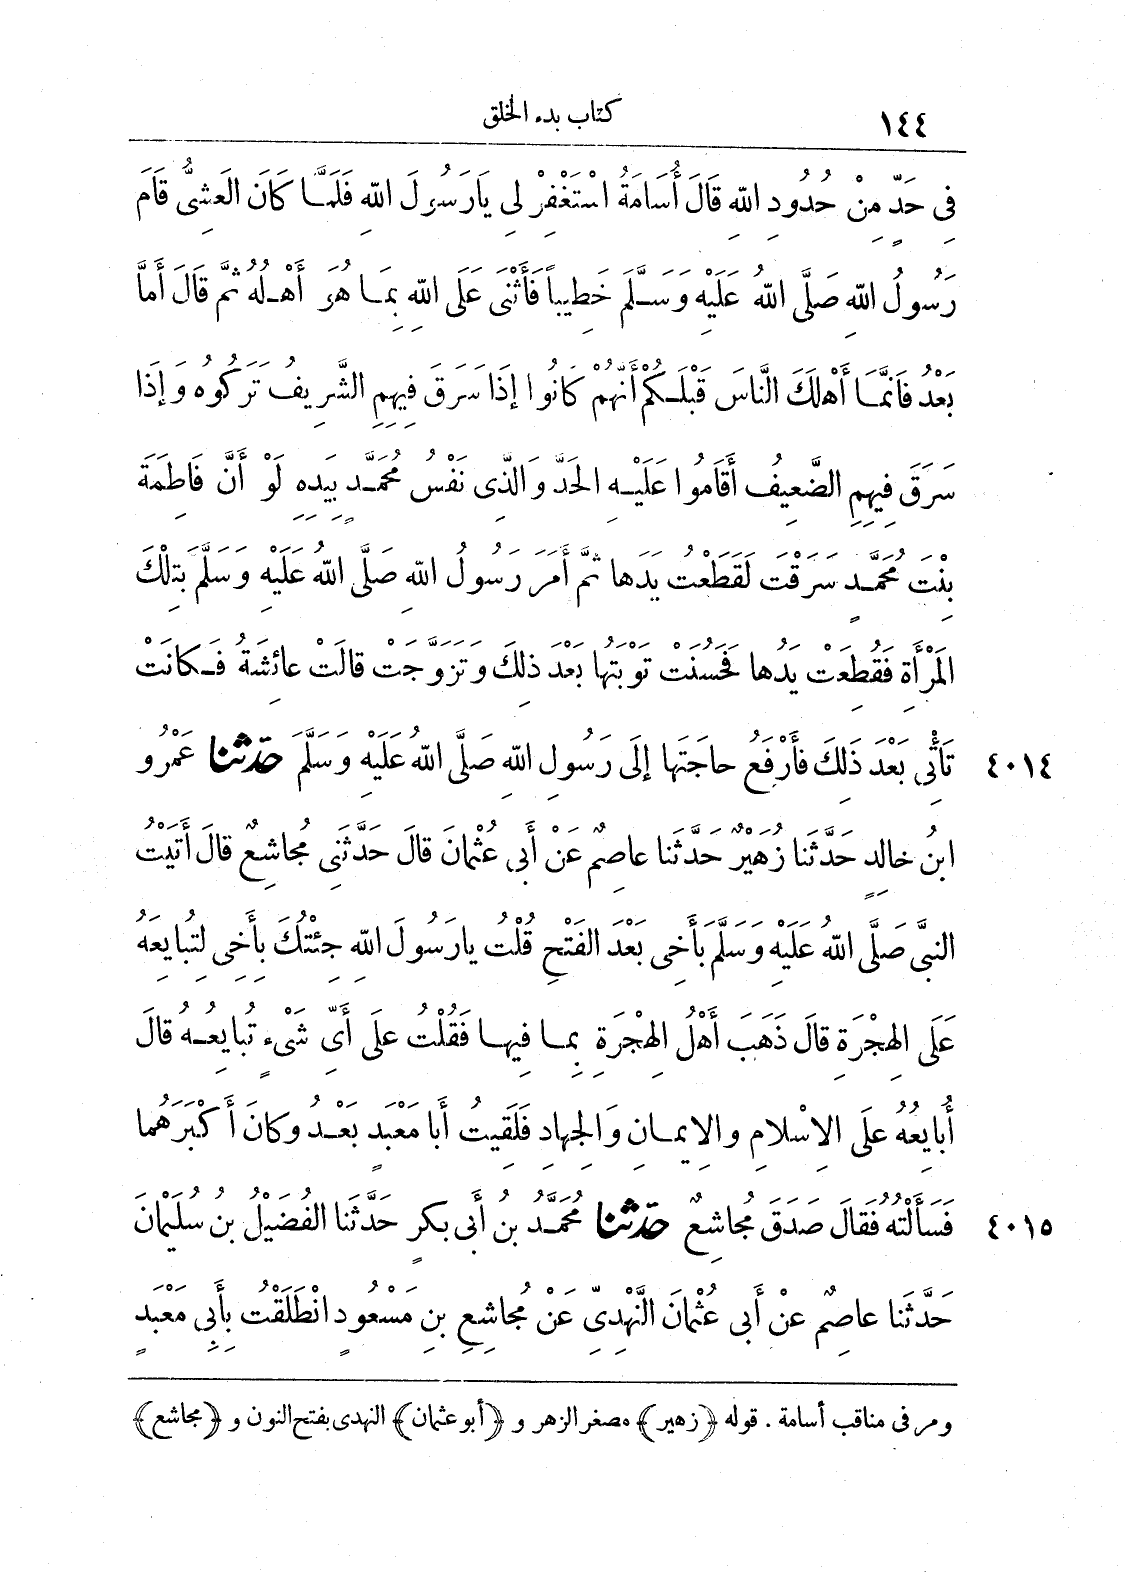 ١٤٤ كتاب بدء الخلق
فِى حَدٍّ مِنْ حُدُودِ اللهِ قَالَ أُسَامَةُ اسْتَغْفِرْ لِى يَارَسُولَ اللهِ فَلَمَّا كَانَ العَشِىُّ قَامَ
رَسُولُ اللهِ صَلَّى اللهُ عَلَيْهِ وَسَلَّمَ خَطِيباً فَأَثْنَى عَلَى اللهِ بِمَا هُوَ أَهْلُهُ ثُمَّ قَالَ أَمَّا
بَعْدُ فَانَّمَا أَهْلَكَ النَّاسَ قَبْلَكُمْ أَنَّهُمْ كَانُوا إِذَا سَرَقَ فِيهِمِ الشَّرِيفُ تَرَكُوهُ وَإِذَا
سَرَقَ فِيهِمِ الضَّعِيفُ أَقَامُوا عَلَيْهِ الحَدَّ وَالَّذِى نَفْسُ مُحَمَّدٍ بِيَدِهِ لَوْ أَنَّ فَاطِمَةَ
بِنْتَ مُحَمَّدٍ سَرَقَتْ لَقَطَعْتُ يَدَهَا ثُمَّ أَمَرَ رَسُولُ اللهِ صَلَّى اللهُ عَلَيْهِ وَسَلَّمَ بِتِلْكَ
المَرْأَةِ فَقُطِعَتْ يَدُها فَحَسُنَتْ تَوْبَتُها بَعْدَ ذلِكَ وَتَزَوَّجَتْ قالَتْ عائِشَةُ فَكانَتْ
٤٠١٤ تَأْتِى بَعْدَ ذَلِكَ فأَرْفَعُ حاجَتَها إِلَى رَسُولِ اللهِ صَلَّى اللهُ عَلَيْهِ وَسَلَّمَ حدّثنا عَمْرُو
ابنُ خالِدٍ حَدَّثَنا زُهَيْرٌ حَدَّثَنا عاصِمٌ عَنْ أَبِى عُثْمانَ قالَ حَدَّثَنِى مُجاشِعٌ قالَ أَتَيْتُ
النبىَّ صَلَّى اللهُ عَلَيْهِ وَسَلَّمَ بأَخِى بَعْدَ الفَتْحِ قُلْتُ يارَسُولَ اللهِ جِئْتُكَ بِأَخِى لِتُبايِعَهُ
عَلَى الهِجْرَةِ قالَ ذَهَبَ أَهْلُ الهِجْرَةِ بِما فِيها فَقُلْتُ علَى أَىِّ شَىْءٍ تُبايِعُهُ قالَ
أُبايِعُهُ علَى الاِسْلامِ والإِيمانِ وَالجِهادِ فَلَقِيتُ أَبا مَعْبَدٍ بَعْدُ وكانَ أَكْبَرَهُما
٤٠١٥ فَسَأَلْتُهُ فَقالَ صَدَقَ مُجاشِعٌ حدّثنا مُحَمَّدُ بن أَبى بكرٍ حَدَّثَنا الفُضَيْلُ بنُ سُلَيْمانَ
حَدَّثَنا عاصِمٌ عَنْ أَبى عُثْمانَ النَّهْدِىِّ عَنْ مُجاشِعِ بنِ مَسْعُودٍ انْطَلَقْتُ بِأَبِى مَعْبَدٍ
ومر فى مناقب أسامة . قوله ﴿زهير﴾ مصغر الزهر و ﴿أبو عثمان﴾ النهدى بفتح النون و ﴿مجاشع﴾